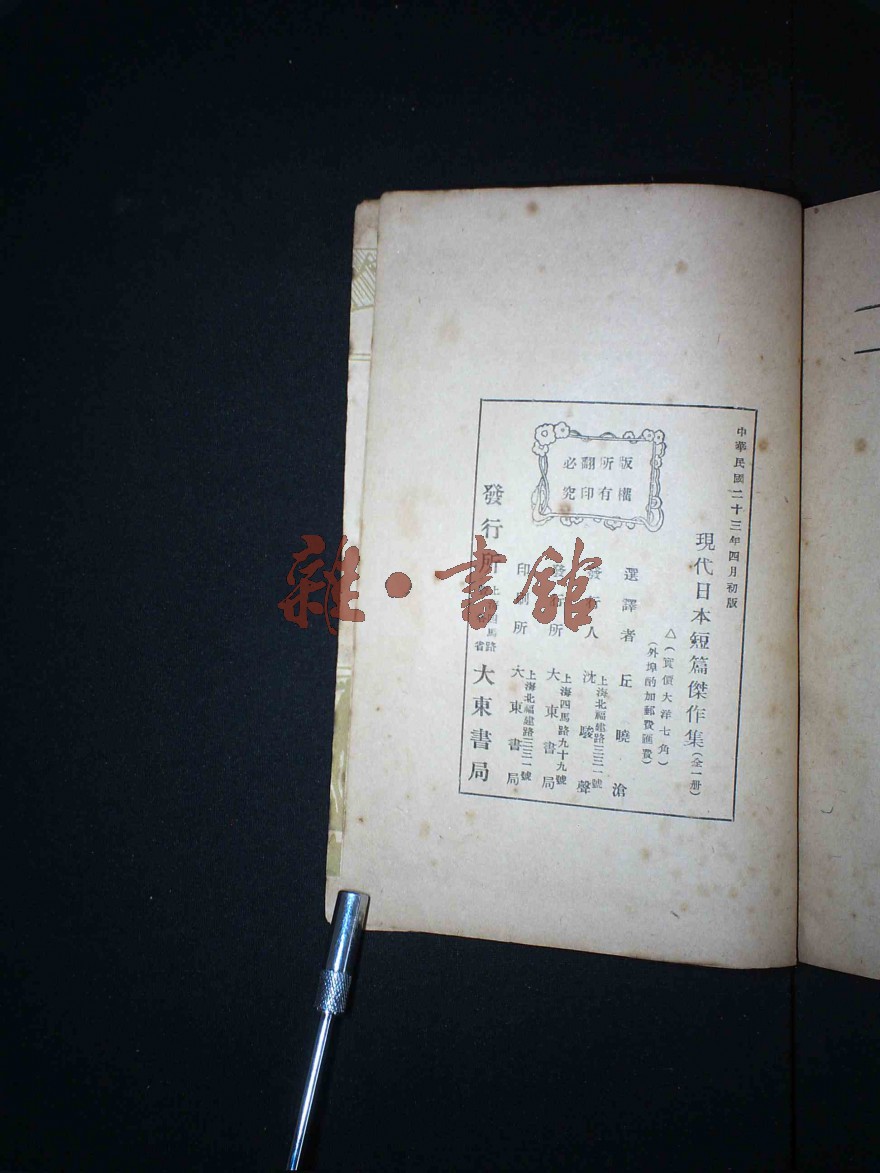 中華民國二十三年四月初版
現代日本短篇傑作集(全一册)
△(實價大洋七角)
(外埠酌加郵費匯費)
選譯者 丘曉滄
發行人 沈駿聲
上海北福建路三三一號
發行所 大東書局
上海四馬路九十九號
印刷所 大東書局
上海北福建路三三一號
發行所 上海四馬路 省 大東書局
版權
所有
翻印
必究
雜·書館